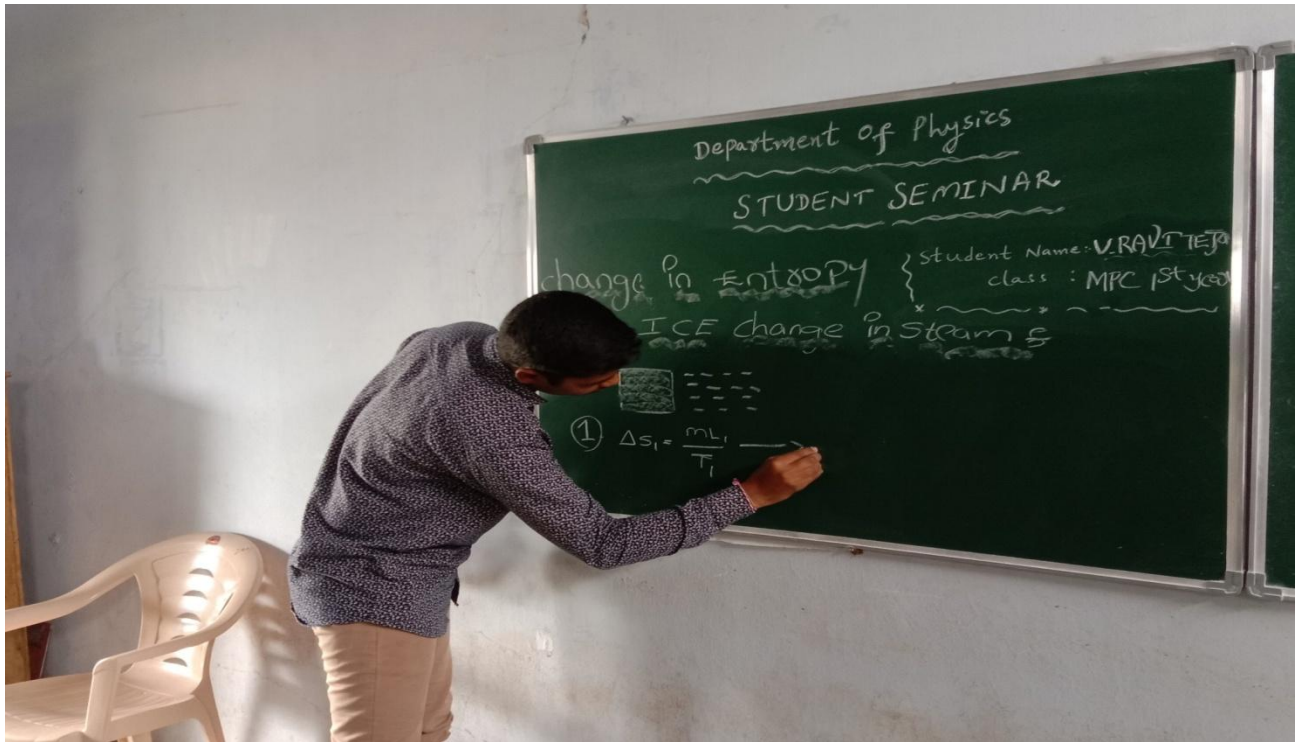 Department of Physics
STUDENT SEMINAR
change in Entropy
Student Name: V.RAVI TEJa
class : MPC 1st year
ICE change in Steam
① ΔS₁ = mL₁/T₁ →